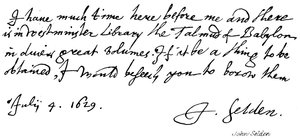 I have much time here before me and there
is in Westminster Library the Talmud of Babylon
in divers great volumes. If it be a thing to be
obtained, I would beseech you to borrow them
July 4. 1629.
J. Selden.
John Selden